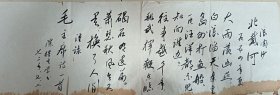 浪淘沙
北戴河
大雨落幽燕
白浪滔天秦皇
岛外打鱼船
一片汪洋都不见
知向谁边
往事越千年
魏武挥鞭东临
碣石有遗篇
萧瑟秋风今又
是换了人间
毛主席词一首